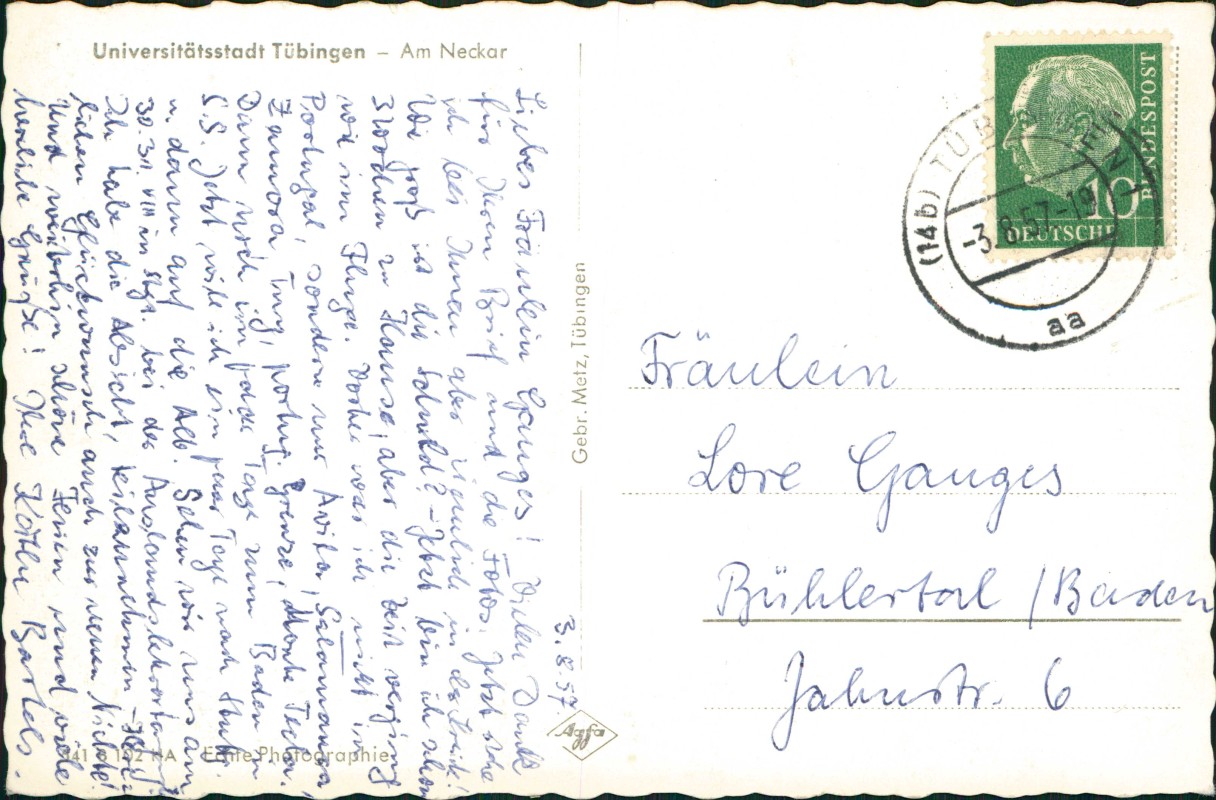 Universitätsstadt Tübingen – Am Neckar
3.8.57.
Liebes Fräulein Ganges! Vielen Dank
für Ihren Brief und die Fotos. Jetzt stehe
ich bei Ihnen aber ziemlich in der Kreide!
Wie groß ist die Schuld? – Jetzt bin ich schon
3 Wochen zu Hause, aber die Zeit verging
wie im Fluge. Vorher war ich nicht in
Portugal, sondern nur Avila, Salamanca,
Zamora, Tuy, portug. Grenze, Monte Tecla.
Dann noch ein paar Tage zum Baden in
S.S. Jetzt will ich ein paar Tage nach Stuttg.
u. dann auf die Alb. Sehen wir uns am
30.31. VIII in Stgt. bei der Auslandslehrertag.?
Ich habe die Absicht, teilzunehmen. – Herz-
lichen Glückwunsch auch zur neuen Nichte!
Und weiterhin schöne Ferien und viele
herzliche Grüße! Ihre Käthe Bartels.
Gebr. Metz, Tübingen
Agfa
Echte Photographie
(14b) TÜBINGEN 1
-3.8.57-19
aa
10
DEUTSCHE
BUNDESPOST
Fräulein
Lore Ganges
Bühlertal / Baden
Jahnstr. 6